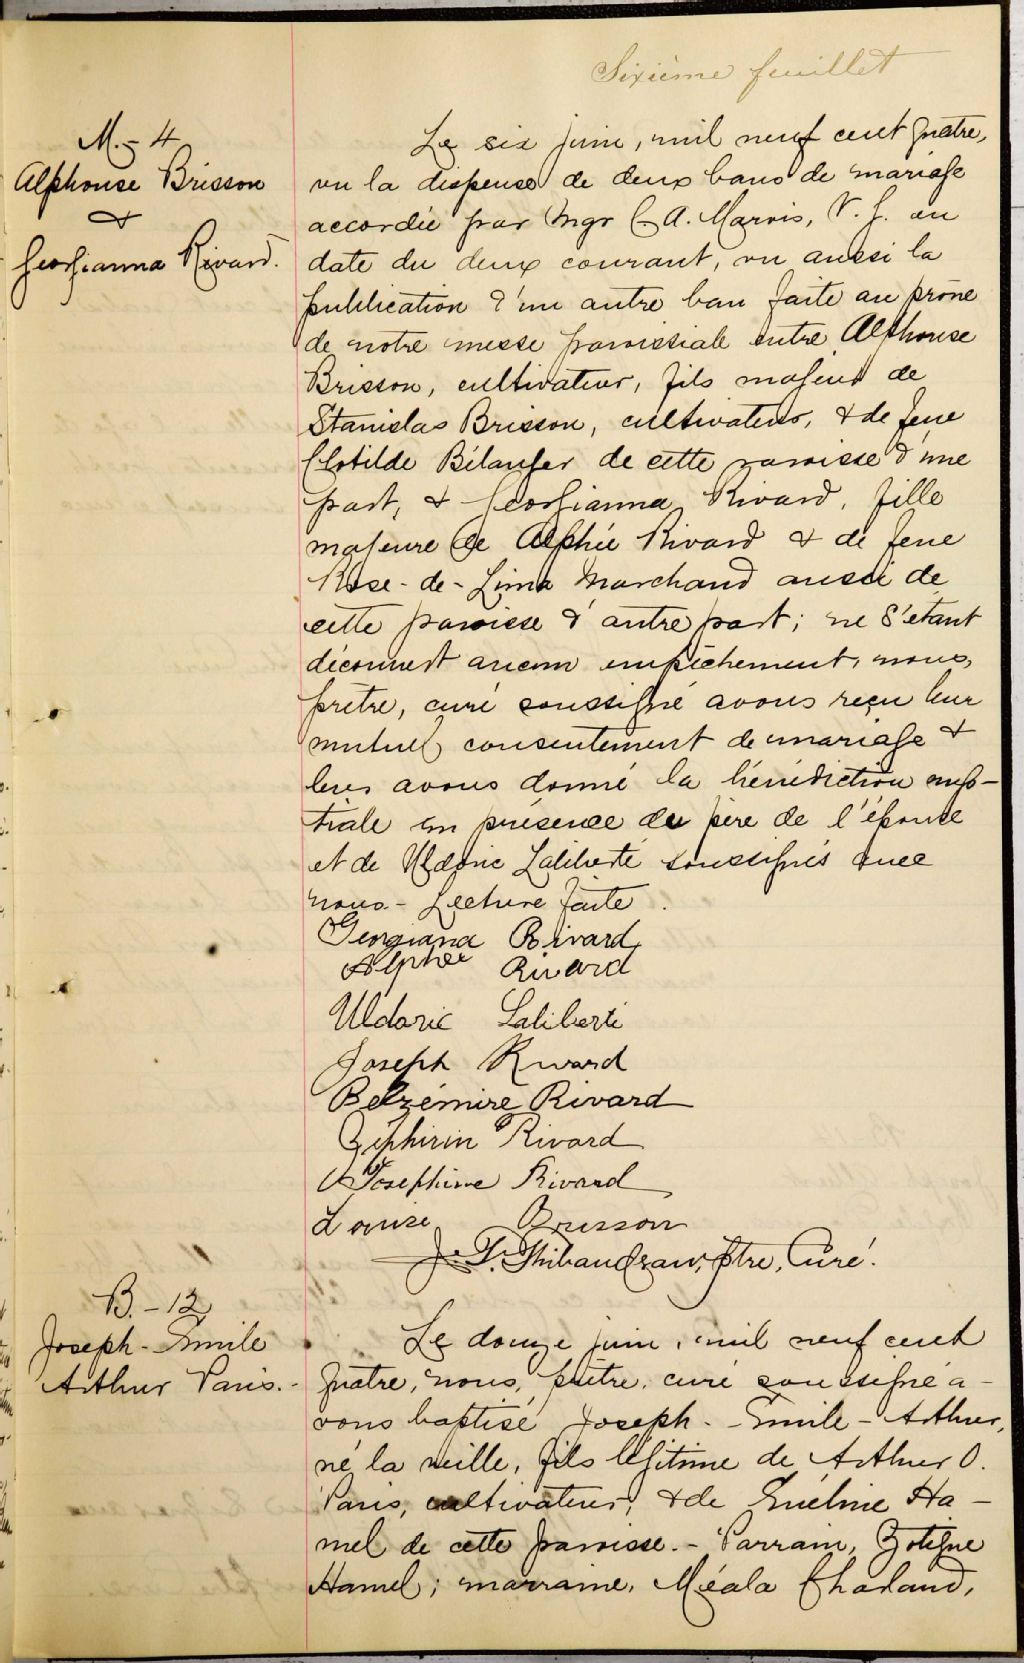 Sixième feuillet
M. - 4
Alphonse Brisson
&
Georgianna Rivard.
Le six juin, mil neuf cent quatre,
vu la dispense de deux bans de mariage
accordée par Mgr C. A. Marois, V. G. en
date du deux courant, vu aussi la
publication d'un autre ban faite au prône
de notre messe paroissiale entre Alphonse
Brisson, cultivateur, fils majeur de
Stanislas Brisson, cultivateur, & de feue
Clotilde Bélanger de cette paroisse d'une
part, & Georgianna Rivard, fille
majeure de Alphée Rivard & de feue
Rose-de-Lima Marchand aussi de
cette paroisse d'autre part; ne s'étant
découvert aucun empêchement, nous,
prêtre, curé soussigné avons reçu leur
mutuel consentement de mariage &
leur avons donné la bénédiction nup-
tiale en présence du père de l'épouse
et de Uldoric Laliberté soussignés avec
nous - Lecture faite.
Georgiana Rivard
Alphée Rivard
Uldoric Laliberté
Joseph Rivard
Belzémire Rivard
Zéphirin Rivard
Josephine Rivard
Louise Brisson
J. P. Thibaudeau, Ptre, Curé.
B. - 12
Joseph - Emile
Arthur Paris. -
Le douze juin, mil neuf cent
quatre, nous, prêtre, curé soussigné a-
vons baptisé Joseph - Emile - Arthur,
né la veille, fils légitime de Arthur O.
Paris, cultivateur, & de Emélie Ha-
mel de cette paroisse. - Parrain, Zotique
Hamel; marraine, Méala Charland,